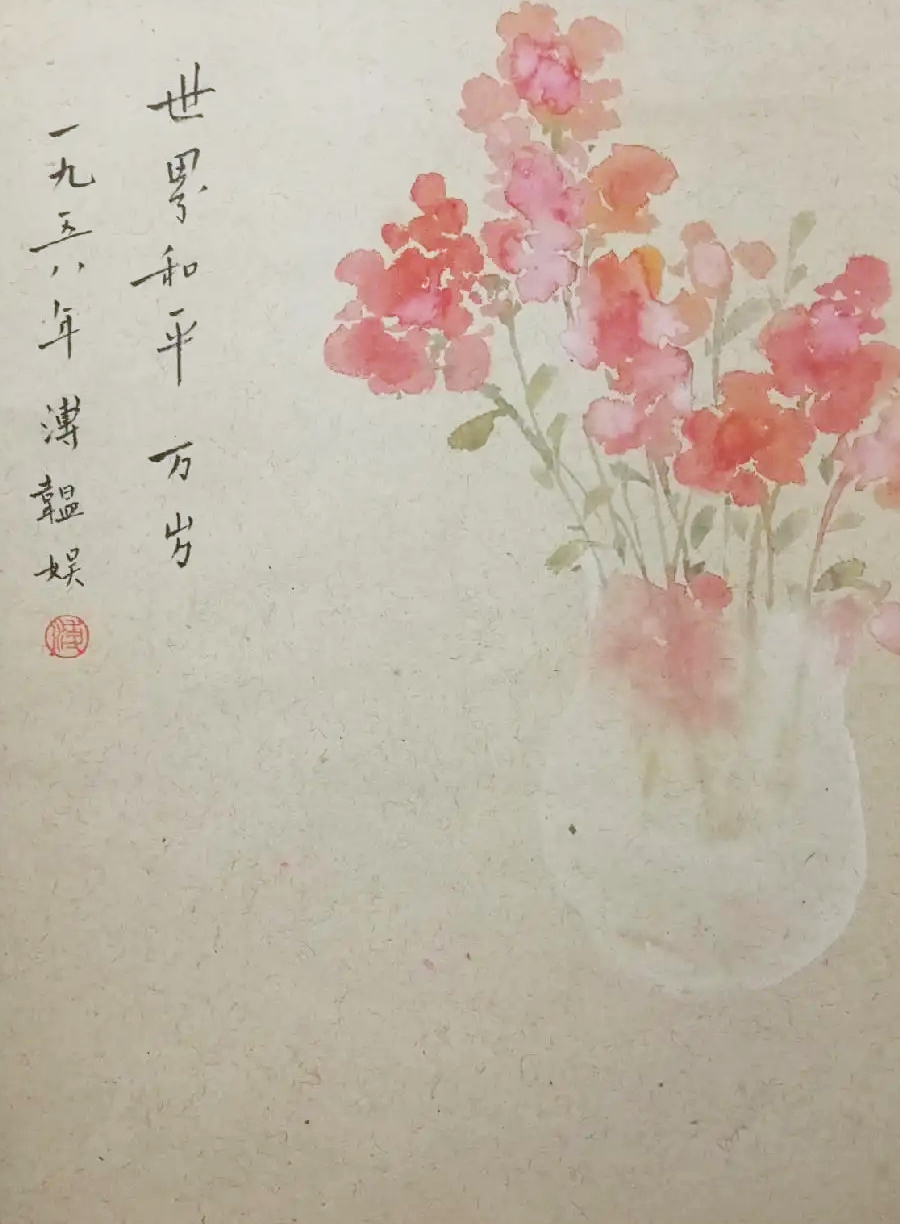 世界和平 万岁
一九五八年 溥韫娱
溥